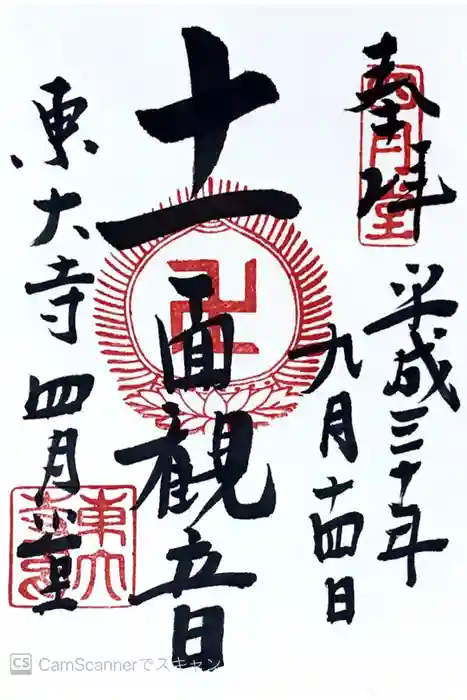 奉拝
平成三十年
九月十四日
十一面観音
東大寺 四月堂
四月堂
東大寺印
CS CamScannerでスキャン